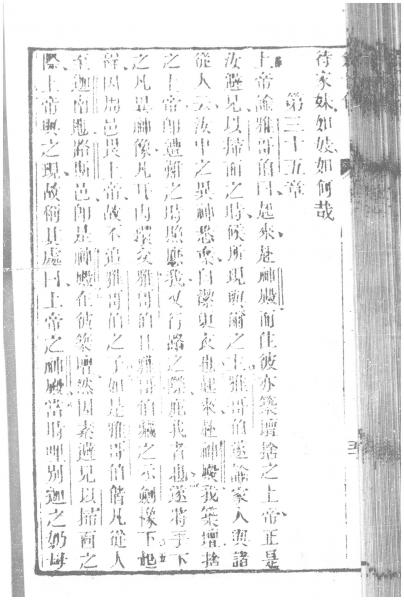 待家妹如娼如何哉
第三十五章
上帝諭雅哥伯曰起來赴神殿而住彼亦築壇捨之上帝正是
汝避見以掃面之時候所現與爾之上雅哥伯遂諭家人與諸
從人云汝中之異神悉棄自潔更衣也起來赴神殿我築壇捨
之上帝卽遭難之時照聽我又行路之際庇我者也遂將手下
之凡異神像凡耳內環交雅哥伯且雅哥伯藏之示劍橡下也
程因周邑畏上帝故不追雅哥伯之子如是雅哥伯偕凡從人
至迦南地路斯邑卽是神殿在彼築壇然因素避見以掃面之
際上帝與之現故稱其處曰上帝之神殿當時哩別迦之奶母